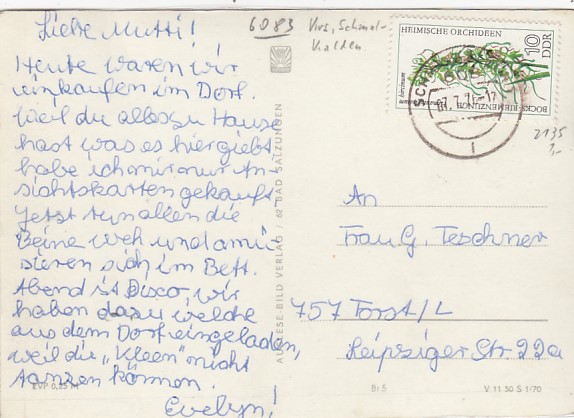 Liebe Mutti!
Heute waren wir
einkaufen im Dorf.
Weil du alles zu Hause
hast was es hier giebt
habe ich mir nur An-
sichtskarten gekauft
Jetzt tun allen die
Beine weh und amü
sieren sich im Bett.
Abend ist Disco, wir
haben dazu welche
aus dem Dorf eingeladen,
weil die „Kleen“ nicht
tanzen können.
Evelyn!
EVP 0,25 M
6083
Krs. Schmal-
kalden.
AUSLESE-BILD VERLAG / 62 BAD SALZUNGEN
HEIMISCHE ORCHIDEEN
DDR
10
BOCKS-RIEMENZUNGE
2135
1,-
An
Frau G. Teschner
757 Forst/L
Leipziger Str. 22a
Br 5
V 11 50 S 1/70